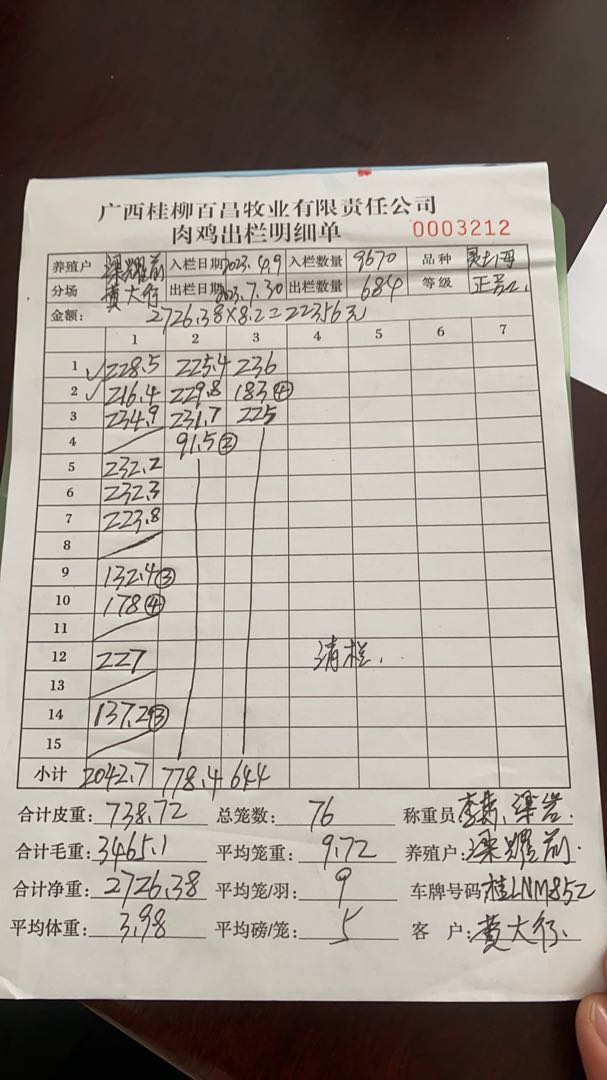 广西桂柳百昌牧业有限责任公司
肉鸡出栏明细单 0003212
养殖户 梁耀前 入栏日期 2023.4.9 入栏数量 9670 品种
分场 黄大行 出栏日期 2023.7.30 出栏数量 684 等级
金额: 2726.38×8.2=22356元
1 2 3 4 5 6 7
1 ✓ 228.5 225.4 236
2 ✓ 216.4 229.8 183④
3 234.9 231.7 225
4 91.5②
5 232.2
6 232.3
7 223.8
8
9 132.4③
10 178④
11
12 227 清栏.
13
14 137.2③
15
小计 2042.7 778.4 644
合计皮重: 738.72 总笼数: 76 称重员
合计毛重: 3465.1 平均笼重: 9.72 养殖户: 梁耀前.
合计净重: 2726.38 平均笼/羽: 9 车牌号码 桂LNM852
平均体重: 3.98 平均磅/笼: 5 客户: 黄大行.